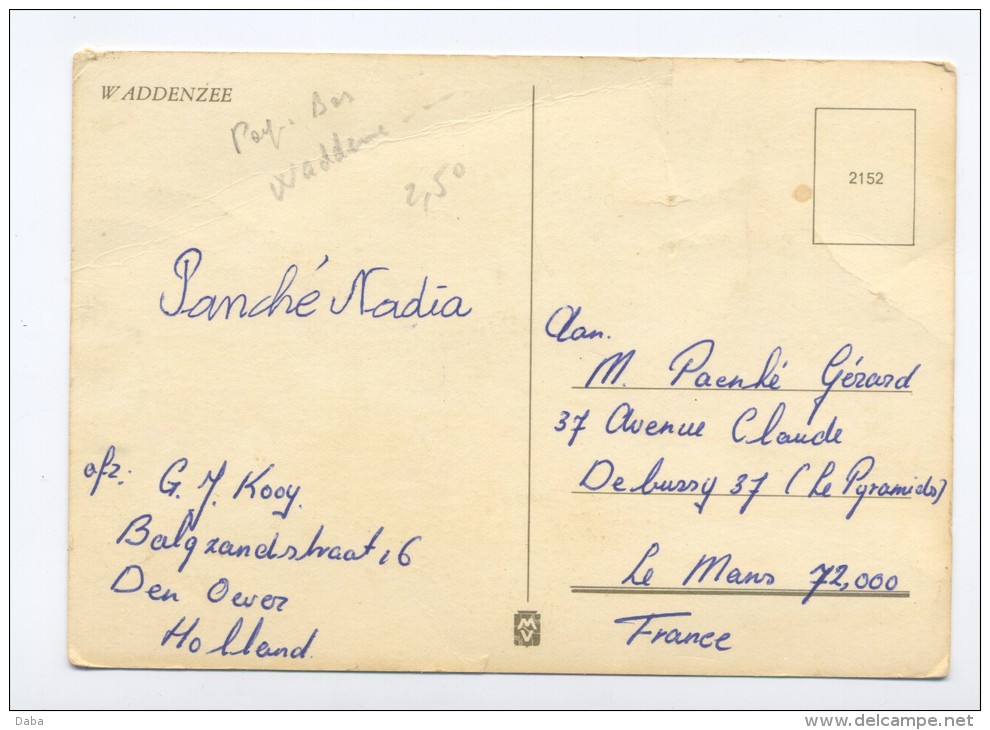 WADDENZEE
Pays-Bas
Waddenze
2,50
2152
Panché Nadia
Aan.
M. Paenhé Gérard
37 Avenue Claude
Debussy 37 (Le Pyramids)
Le Mans 72,000
France
afz: G. J. Kooy.
Balgzandstraat 16
Den Oever
Holland.
MV
Daba
www.delcampe.net